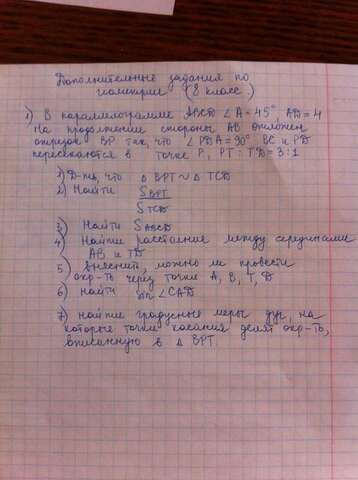 Дополнительные задания по
геометрии (8 класс.)
1) В параллелограмме ABCD ∠A = 45°, AD = 4
На продолжении стороны AB отложен
отрезок BP так, что ∠PDA = 90° BC и PD
пересекаются в точке P, PT : TD = 3 : 1
1) Д-ть, что Δ BPT ~ Δ TCD
2) Найти S BPT / S TCD
3) Найти S ABCD
4) Найти расстояния между серединами
AB и TD
5) выяснить, можно ли провести
окр-ть через точки A, B, T, D
6) найти sin ∠CAD
7) найти градусные меры дуг, на
которые точки касания делят окр-ть,
вписанную в Δ BPT.